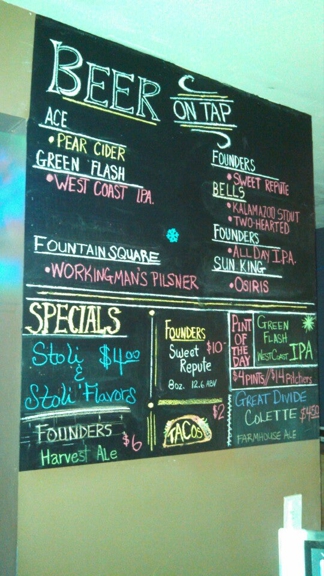 BEER ON TAP
ACE
• PEAR CIDER
GREEN FLASH
• WEST COAST IPA.
FOUNTAIN SQUARE
• WORKINGMAN'S PILSNER
FOUNDERS
• SWEET REPUTE
BELLS
• KALAMAZOO STOUT
• TWO-HEARTED
FOUNDERS
• ALL DAY I.P.A.
SUN KING
• OSIRIS
SPECIALS
Stoli $4.00
&
Stoli Flavors
FOUNDERS
Harvest Ale $6
FOUNDERS
Sweet $10
Repute
8oz. 12.6 ABV
$2
TACOS
PINT
OF THE
DAY
GREEN
FLASH
WEST COAST IPA
$4 PINTS/$14 Pitchers
GREAT DIVIDE
COLETTE $4.50
FARMHOUSE ALE